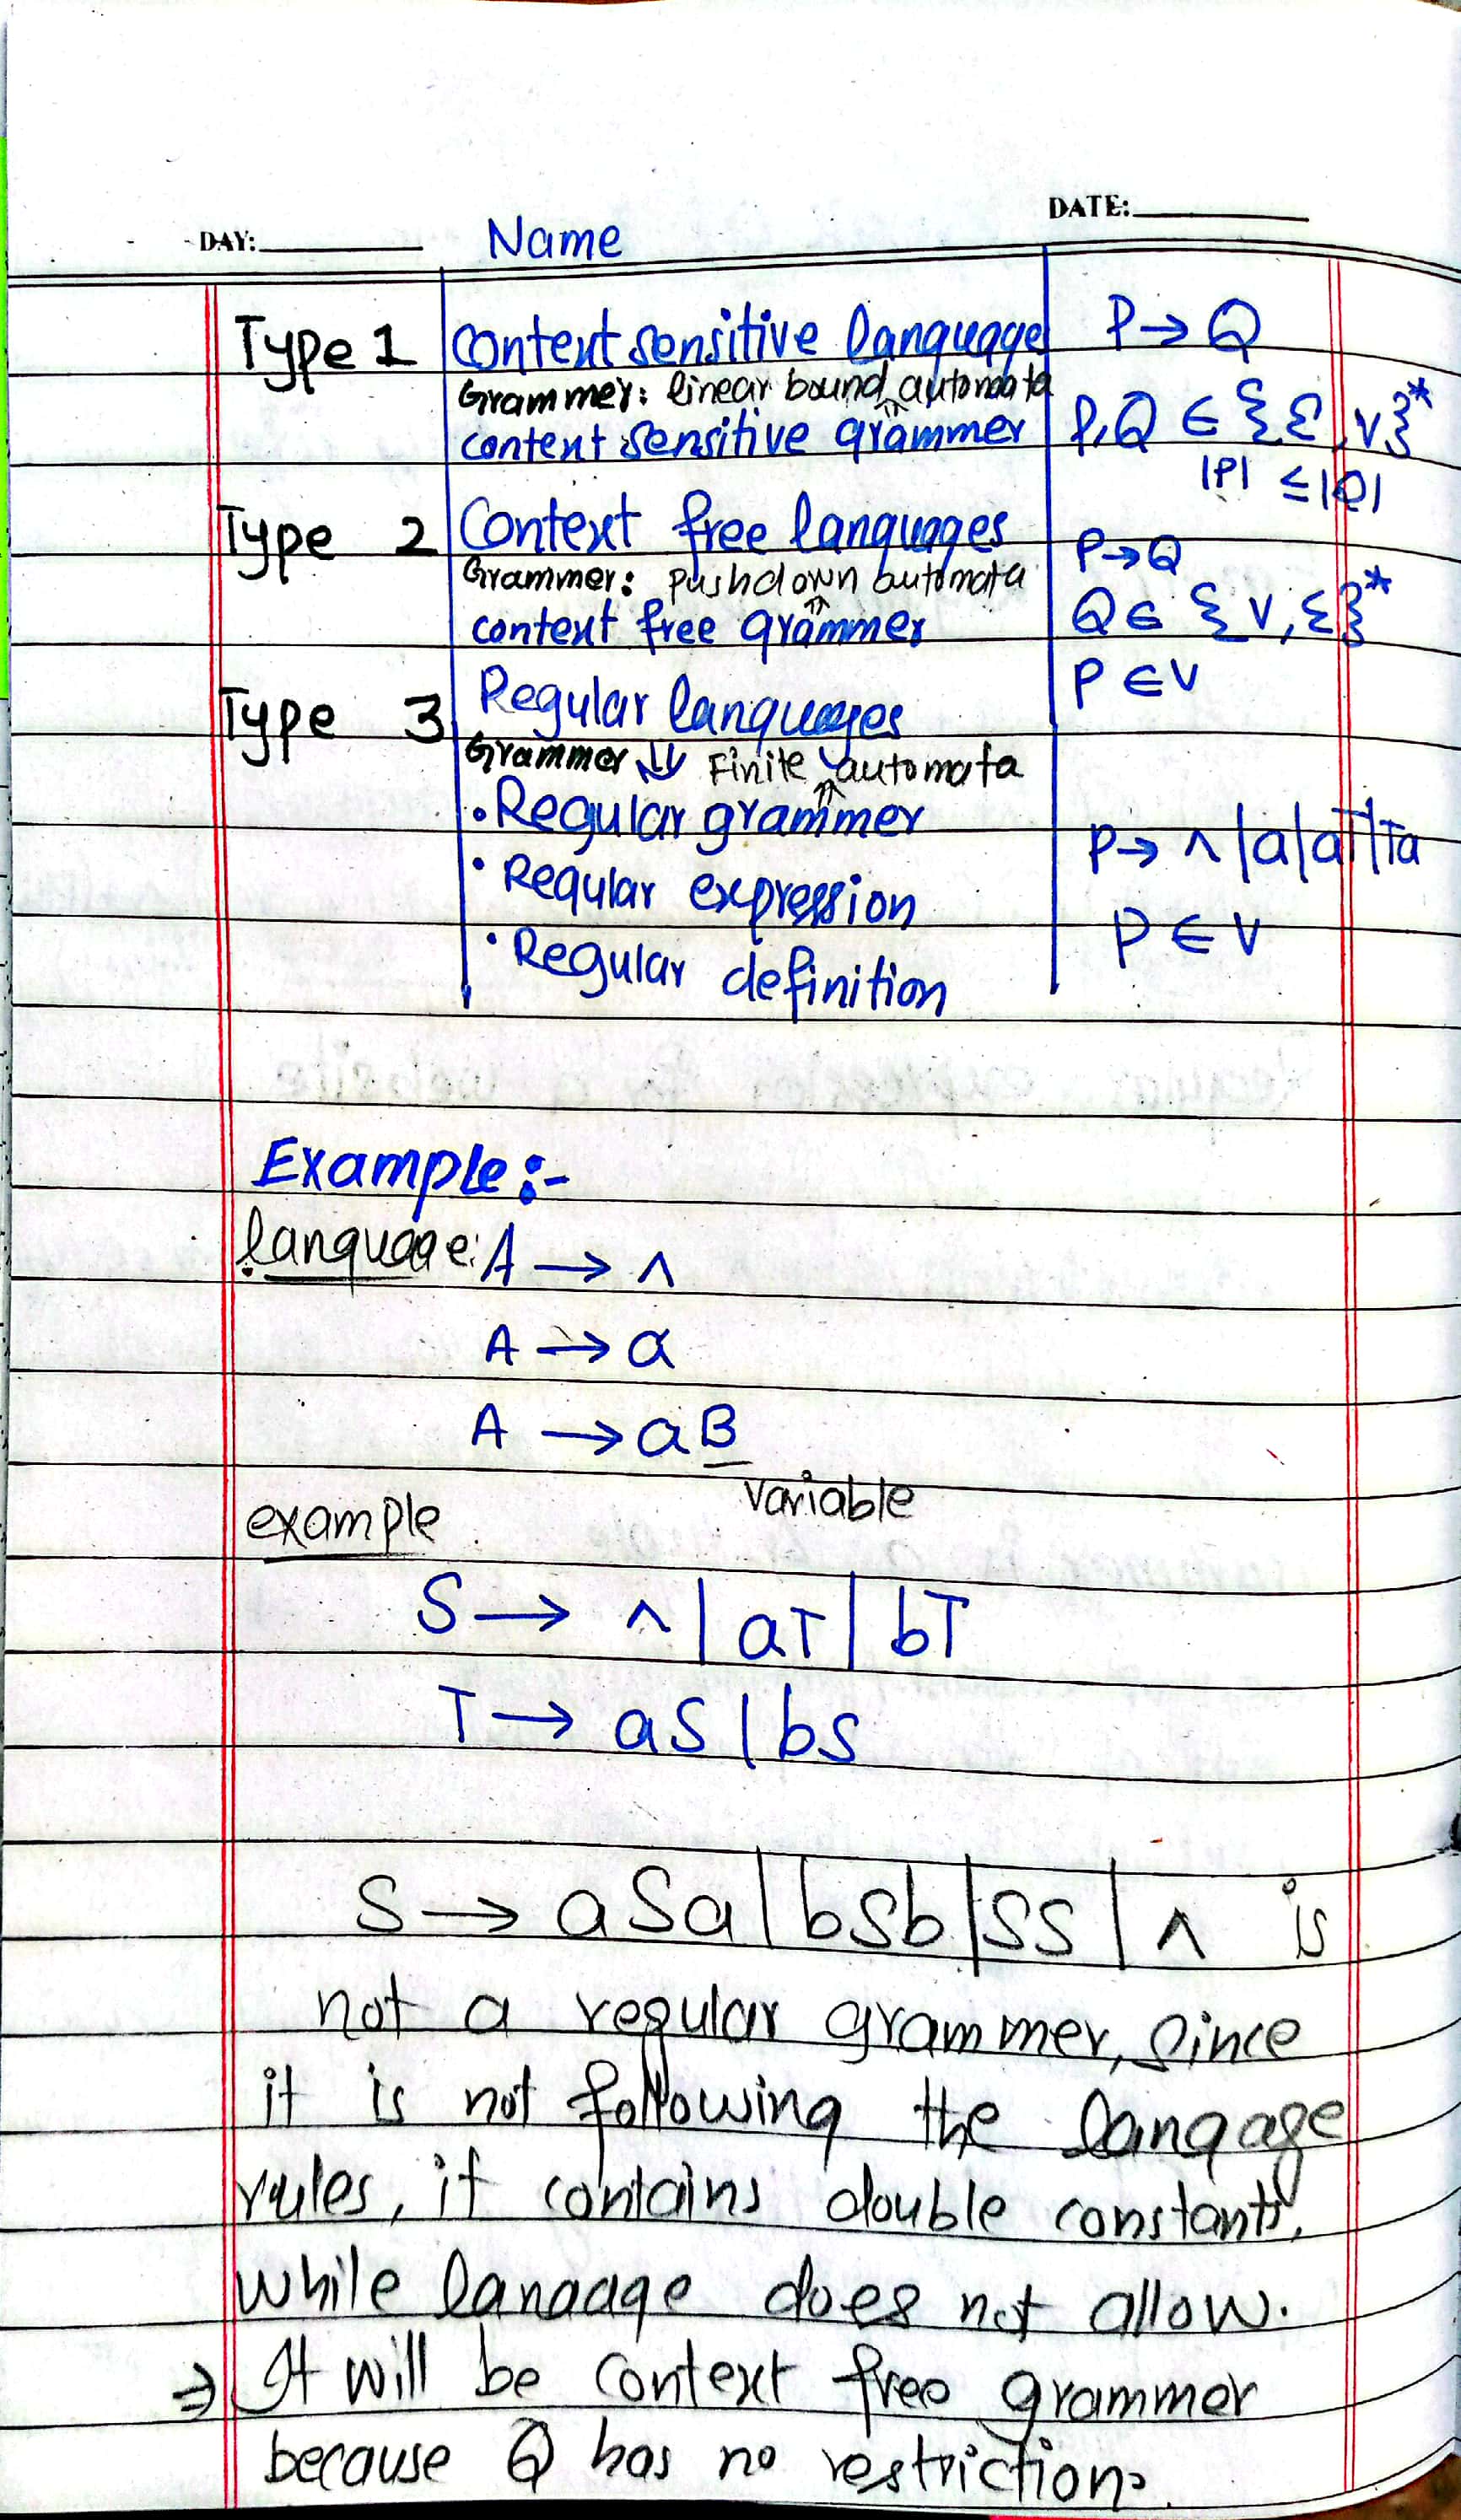 DAY: Name DATE:
Type 1 Context sensitive language P → Q
Grammer: linear bound automata
context sensitive grammer P,Q ∈ {Σ, V}*
|P| ≤ |Q|
Type 2 Context free languages P → Q
Grammer: pushdown automata
context free grammer Q ∈ {V, Σ}*
P ∈ V
Type 3 Regular languages
Grammer ⇓ Finite automata
• Regular grammer P → ^ | a | aT | Ta
• Regular expression
P ∈ V
• Regular definition
Example :-
language: A → ^
A → a
A → aB
variable
example
S → ^ | aT | bT
T → aS | bS
S → aSa | bSb | SS | ^ is
not a regular grammer, since
it is not following the langage
rules, it contains double constants,
while langage does not allow.
⇒ It will be context free grammer
because Q has no restriction.